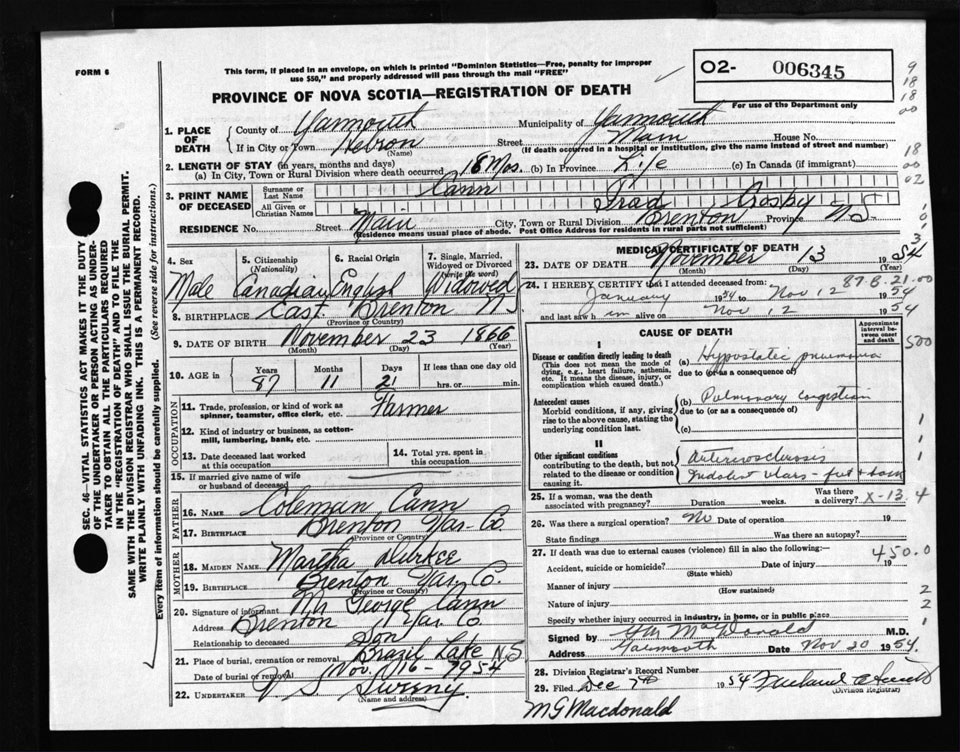 FORM 6
This form, if placed in an envelope, on which is printed "Dominion Statistics—Free, penalty for improper
use $50," and properly addressed will pass through the mail "FREE"
O2- 006345
For use of the Department only
PROVINCE OF NOVA SCOTIA—REGISTRATION OF DEATH
1. PLACE OF DEATH { County of Yarmouth Municipality of Yarmouth
If in City or Town Hebron (Name) Street Main House No.
(If death occurred in a hospital or institution, give the name instead of street and number)
2. LENGTH OF STAY (in years, months and days)
(a) In City, Town or Rural Division where death occurred 18 Mos. (b) In Province Life (c) In Canada (if immigrant)
3. PRINT NAME OF DECEASED { Surname or Last Name Cann
All Given or Christian Names Crosby
RESIDENCE No. Street Main City, Town or Rural Division Brenton Province N S
(Residence means usual place of abode. Post Office Address for residents in rural parts not sufficient)
4. Sex Male
5. Citizenship (Nationality) Canadian
6. Racial Origin English
7. Single, Married, Widowed or Divorced (write the word) Widowed
8. BIRTHPLACE East Brenton N S
(Province or Country)
9. DATE OF BIRTH November 23 1866
(Month) (Day) (Year)
10. AGE in { Years 87 Months 11 Days 21 If less than one day old hrs. or min.
OCCUPATION
11. Trade, profession, or kind of work as spinner, teamster, office clerk, etc. Farmer
12. Kind of industry or business, as cotton-mill, lumbering, bank, etc.
13. Date deceased last worked at this occupation
14. Total yrs. spent in this occupation
15. If married give name of wife or husband of deceased
FATHER
16. NAME Coleman Cann
17. BIRTHPLACE Brenton Yar. Co.
(Province or Country)
MOTHER
18. MAIDEN NAME Martha Durkee
19. BIRTHPLACE Brenton Yar. Co.
(Province or Country)
20. Signature of informant Mr George Cann
Address Brenton Yar. Co.
Relationship to deceased Son
21. Place of burial, cremation or removal Brazil Lake N.S.
Date of burial or removal Nov. 16 - 1954
22. UNDERTAKER V S Sweeny
(Name and address)
MEDICAL CERTIFICATE OF DEATH
23. DATE OF DEATH November 13 1954
(Month) (Day) (Year)
24. I HEREBY CERTIFY that I attended deceased from:
January 1954 to Nov 12 1954
and last saw him alive on Nov 12 1954
CAUSE OF DEATH
Approximate interval between onset and death
I
Disease or condition directly leading to death
(This does not mean the mode of dying, e.g., heart failure, asthenia, etc. It means the disease, injury, or complication which caused death.)
(a) Hypostatic pneumonia
due to (or as a consequence of)
Antecedent causes
Morbid conditions, if any, giving rise to the above cause, stating the underlying condition last.
(b) Pulmonary congestion
due to (or as a consequence of)
(c)
II
Other significant conditions
contributing to the death, but not related to the disease or condition causing it.
Arteriosclerosis
Indolent ulcers - feet &
25. If a woman, was the death associated with pregnancy? Duration weeks. Was there a delivery?
X-13.4
26. Was there a surgical operation? No Date of operation 19
State findings Was there an autopsy?
27. If death was due to external causes (violence) fill in also the following:—
Accident, suicide or homicide? Date of injury 19
(State which)
450.0
Manner of injury
(How sustained)
Nature of injury
Specify whether injury occurred in industry, in home, or in public place
Signed by MacDonald M.D.
Address Yarmouth Date Nov 20 1954.
28. Division Registrar's Record Number
29. Filed Dec 7th 1954
(Division Registrar)
M G Macdonald
SEC. 46—VITAL STATISTICS ACT MAKES IT THE DUTY
OF THE UNDERTAKER OR PERSON ACTING AS UNDER-
TAKER TO OBTAIN ALL THE PARTICULARS REQUIRED
IN THE "REGISTRATION OF DEATH" AND TO FILE THE
SAME WITH THE DIVISION REGISTRAR WHO SHALL ISSUE THE BURIAL PERMIT.
WRITE PLAINLY WITH UNFADING INK. THIS IS A PERMANENT RECORD.
Every item of information should be carefully supplied. (See reverse side for instructions.)